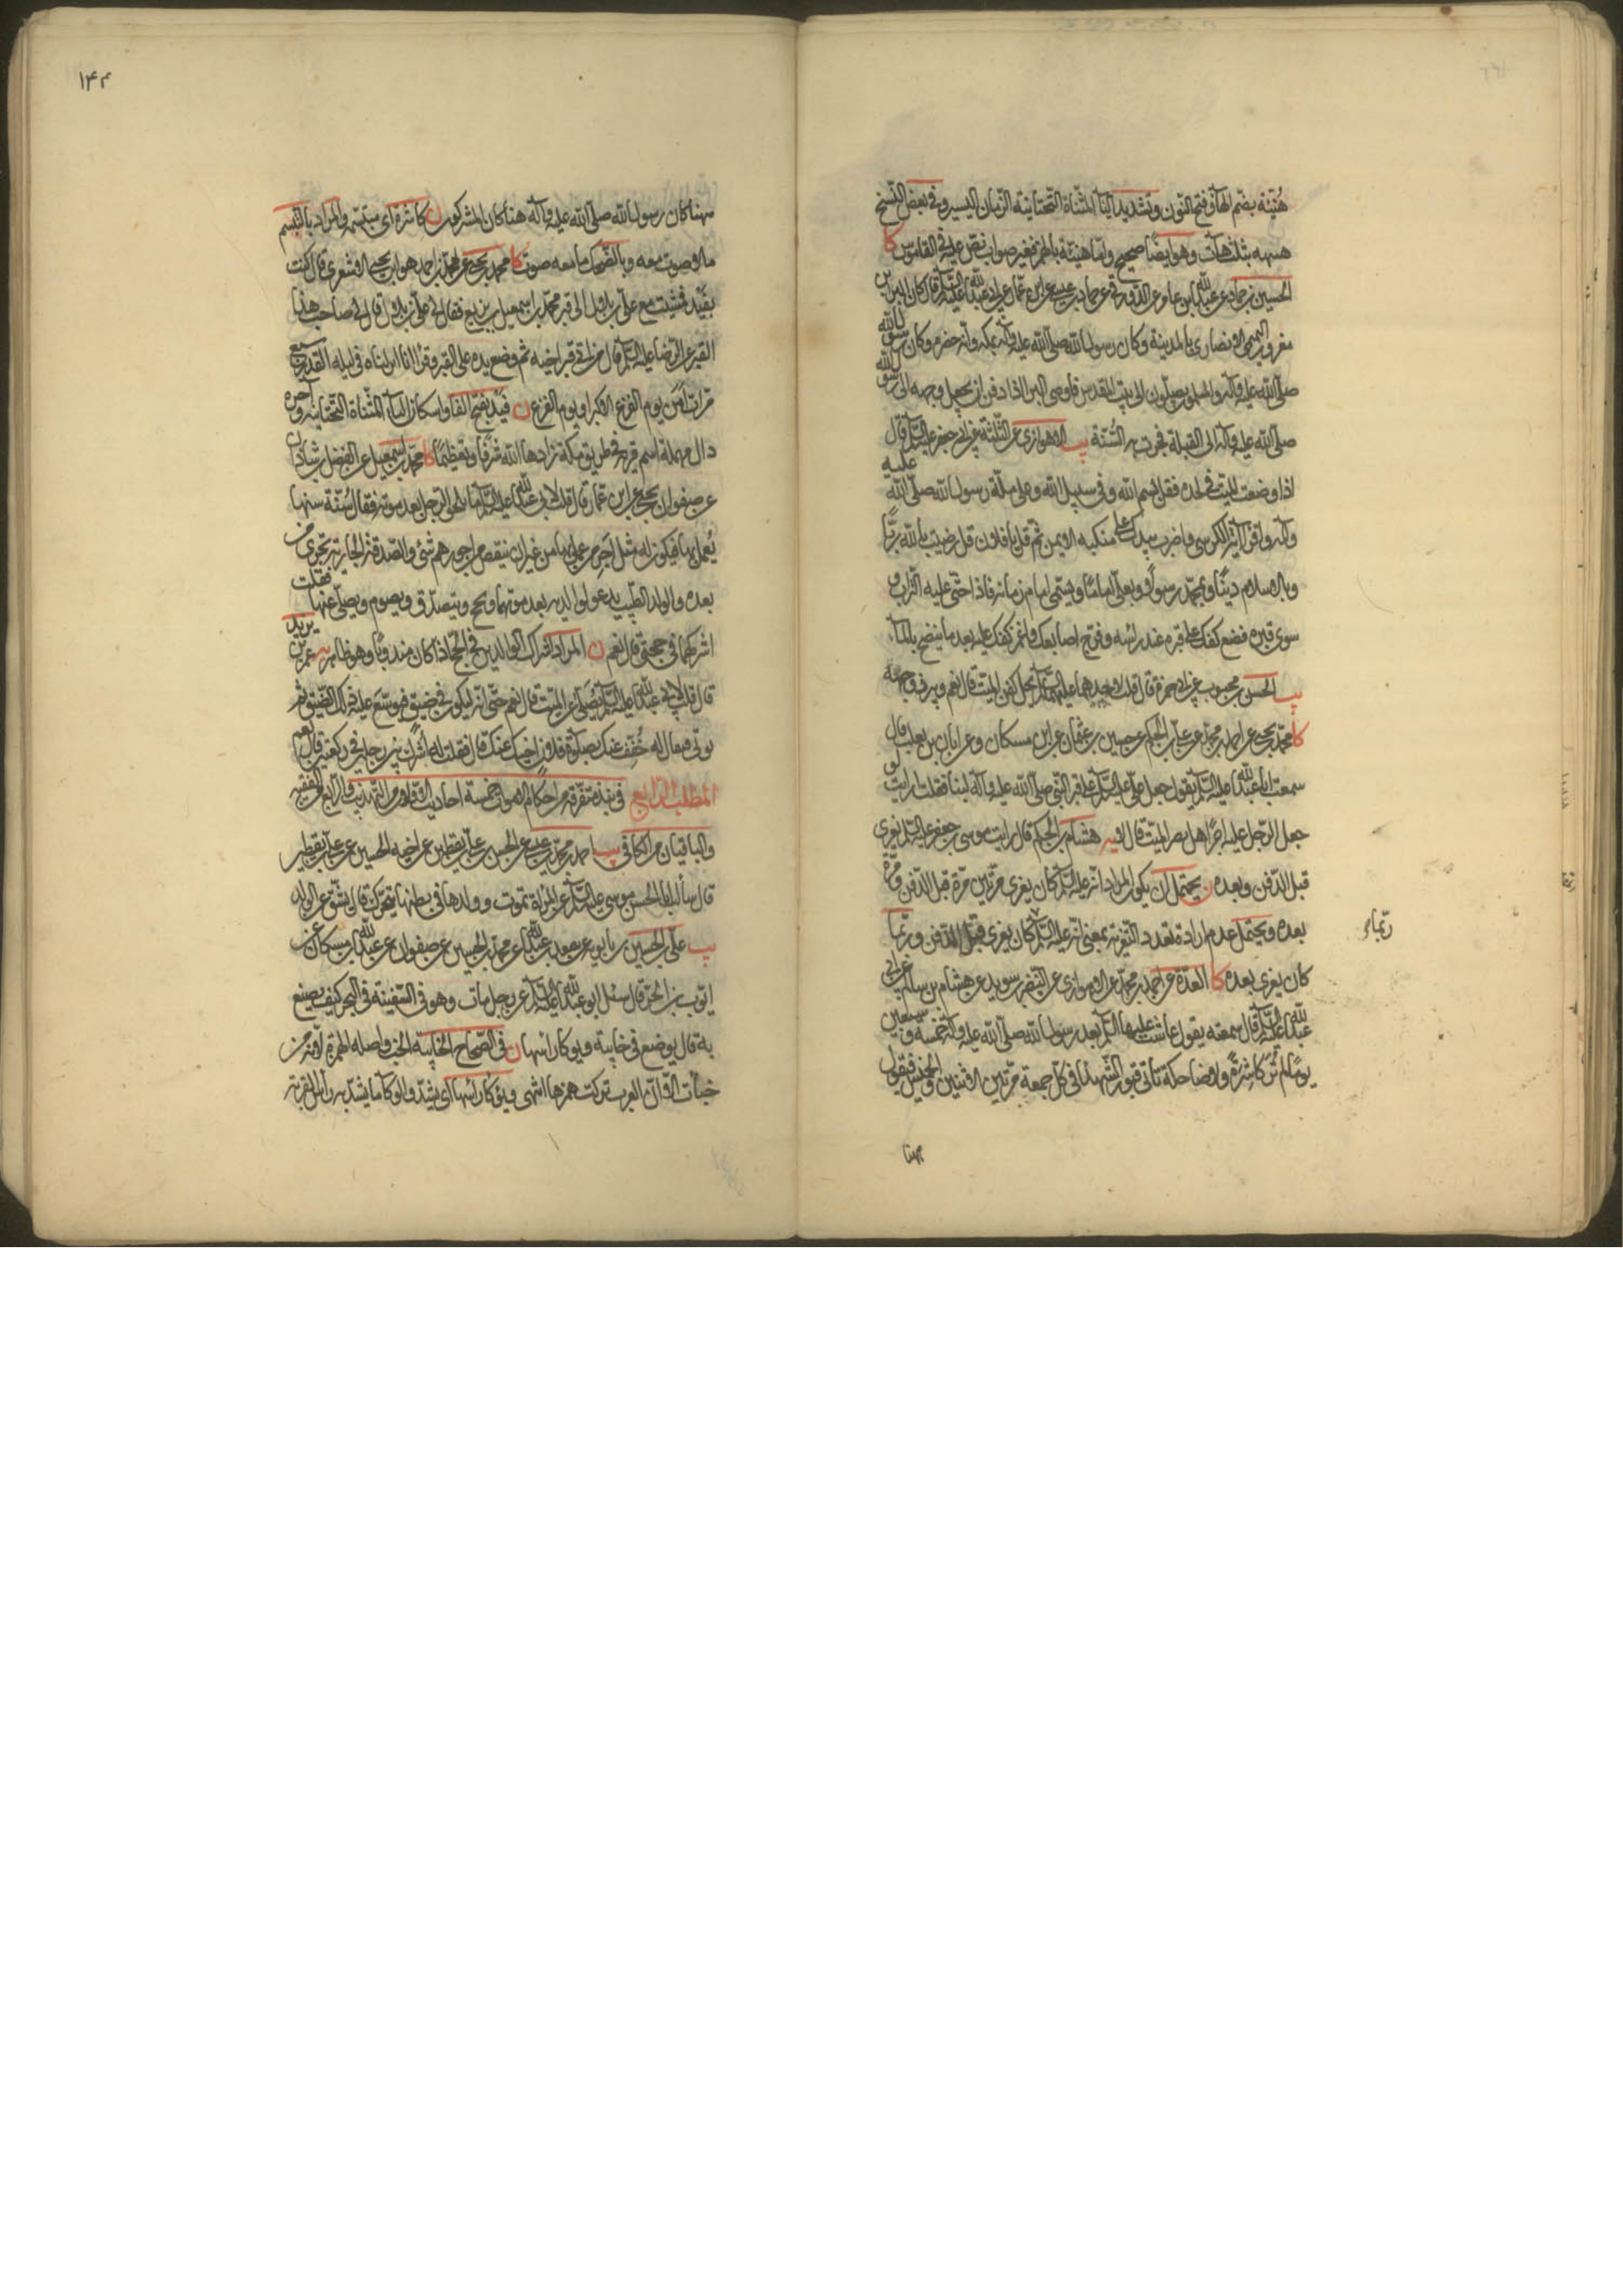 هُنَيئة بضم الهاء وفتح النون وتشديد الياء المثناة التحتانية الزمان اليسير وفى بعض النسخ
هنيهه بثلث هاآت وهو ايضا صحيح واما هنيئة بالهمز فغير صواب نص عليه فى القاموس كا
الحسين بن محمد عن عبدالله بن عامر عن ابن عيسى عن ابن عمار عن ابى عبدالله عليه السلام قال كان البراء بن
معرور التميمى الانصارى بالمدينة وكان رسول الله صلى الله عليه وآله بمكة وانه حضره وكان رسول الله
صلى الله عليه وآله والمسلمون يصلون الى بيت المقدس فاوصى البراء اذا دفن ان يجعل وجهه الى رسول الله
صلى الله عليه وآله الى القبلة فجرت به السنة يب الاهوازى عن الثلاثة عن ابى جعفر عليه السلام قال
اذا وضعت الميت فى لحده فقل بسم الله وفى سبيل الله وعلى ملة رسول الله صلى الله عليه
وآله واقرأ آية الكرسى واضرب بيدك على منكبه الايمن ثم قل يا فلان قل رضيت بالله ربًّا
وبالاسلام دينًا وبمحمد رسولًا وبعلى امامًا ويسمى امام زمانه فاذا حثى عليه التراب و
سوى قبره فضع كفك على قبره عند راسه وفرج اصابعك واغمز كفك عليه بعد ما ينضح بالماء
يب الحسن بن محبوب عن ابى حمزة قال قلت لاحدهما عليهما السلام يحل كفن الميت قال نعم ويبرز وجهه
كا محمد بن يحيى عن احمد بن محمد عن على بن الحكم عن حسين بن عثمان عن ابن مسكان وعن ابان بن تغلب قال
سمعت ابا عبدالله عليه السلام يقول جعل على عليه السلام على قبر النبى صلى الله عليه وآله لبنا فقلت ارايت لو
جعل الرجل عليه اجرًّا هل يضر الميت قال لا يه هشام بن الحكم قال رايت موسى بن جعفر عليه السلام يعزى
قبل الدفن وبعده ن يحتمل ان يكون المراد انه عليه السلام كان يعزى مرتين مرة قبل الدفن ومرة
بعده ويحتمل عدم ارادة تعدد التعزية بمعنى انه عليه السلام كان يعزى قبل الدفن وربما
ربما
كان يعزى بعده كا العدة عن احمد بن محمد عن الاهوازى عن النضر بن سويد عن هشام بن سالم عن ابى
عبدالله عليه السلام قال سمعته يقول عاشت عليها السلام بعد رسول الله صلى الله عليه وآله خمسة وسبعين
يومًا لم تُرَ كاشرةً ولا ضاحكة تاتى قبور الشهداء فى كل جمعة مرتين الاثنين والخميس فيقول
ههنا
١٤٣
ههنا كان رسول الله صلى الله عليه وآله ههنا كان المشركون ن كاشرة اى متبسمة والمراد بالتبسم
ما لا صوت معه وبالضحك ما معه صوت كا محمد بن يحيى عن محمد بن احمد هو ابن يحيى الاشعرى قال كنت
بفَيْد فمشيت مع على بن بلال الى قبر محمد بن اسمعيل بن بزيع فقال لى على بن بلال قال لى صاحب هذا
القبر عن الرضا عليه السلام قال من اتى قبر اخيه ثم وضع يده على القبر وقرأ انا انزلناه فى ليلة القدر سبع
مرات اَمِنَ يوم الفزع الاكبر او يوم الفزع ن فَيْد بفتح الفاء واسكان الياء المثناة التحتانية وآخره
دال مهملة اسم قرية فى طريق مكة زادها الله شرفًا وتعظيمًا كا محمد بن اسمعيل عن الفضل بن شاذان
عن صفوان بن يحيى عن ابن عمار قال قلت لابى عبدالله عليه السلام ما يلحق الرجل بعد موته فقال سُنّة سنها
يُعمل بها فيكون له مثل اجر من عمل بها من غير ان ينقص من اجورهم شئ والصدقة الجارية تجرى من
بعده والولد الطيب يدعو لوالديه بعد موتهما ويحج ويتصدق ويصوم ويصلى عنهما فقلت
اشركهما فى حجتى قال نعم ن المراد اشراك الوالدين فى الحج اذا كان مندوبًا وهو ظاهر يه عمر بن يزيد
قال قلت لابى عبدالله عليه السلام يُصَلّى عن الميت قال نعم حتى انه ليكون فى ضيق فيوسّع عليه ذلك الضيق ثم
يؤتى فيقال له خُفّف عنك بصلوة فلان اخيك عنك قال فقلت له اُشرك بين رجلين فى ركعتين قال نعم
المطلب الرابع فى نبذة متفرقة من احكام الاموات خمسة احاديث الاولان من التهذيب والرابع من الفقيه
والباقيان من الكافى يب احمد بن محمد بن عيسى عن الحسن بن على بن يقطين عن اخيه الحسين عن على بن يقطين
قال سألت ابا الحسن موسى عليه السلام عن المراة تموت وولدها فى بطنها يتحرك قال يشق عن الولد
يب على بن الحسين بن بابويه عن سعد بن عبدالله عن محمد بن الحسين عن صفوان عن عبدالله بن مسكان عن
ايوب بن الحر قال سئل ابو عبدالله عليه السلام عن رجل مات وهو فى السفينة فى البحر كيف يصنع
به قال يوضع فى خابية ويوكأ راسها ن فى الصحاح الخابية الحب واصله الهمزة لانه من
خبأت الا ان العرب تركت همزها انتهى ويوكأ راسها اى يشد والوكاء ما يشد به راس القربة